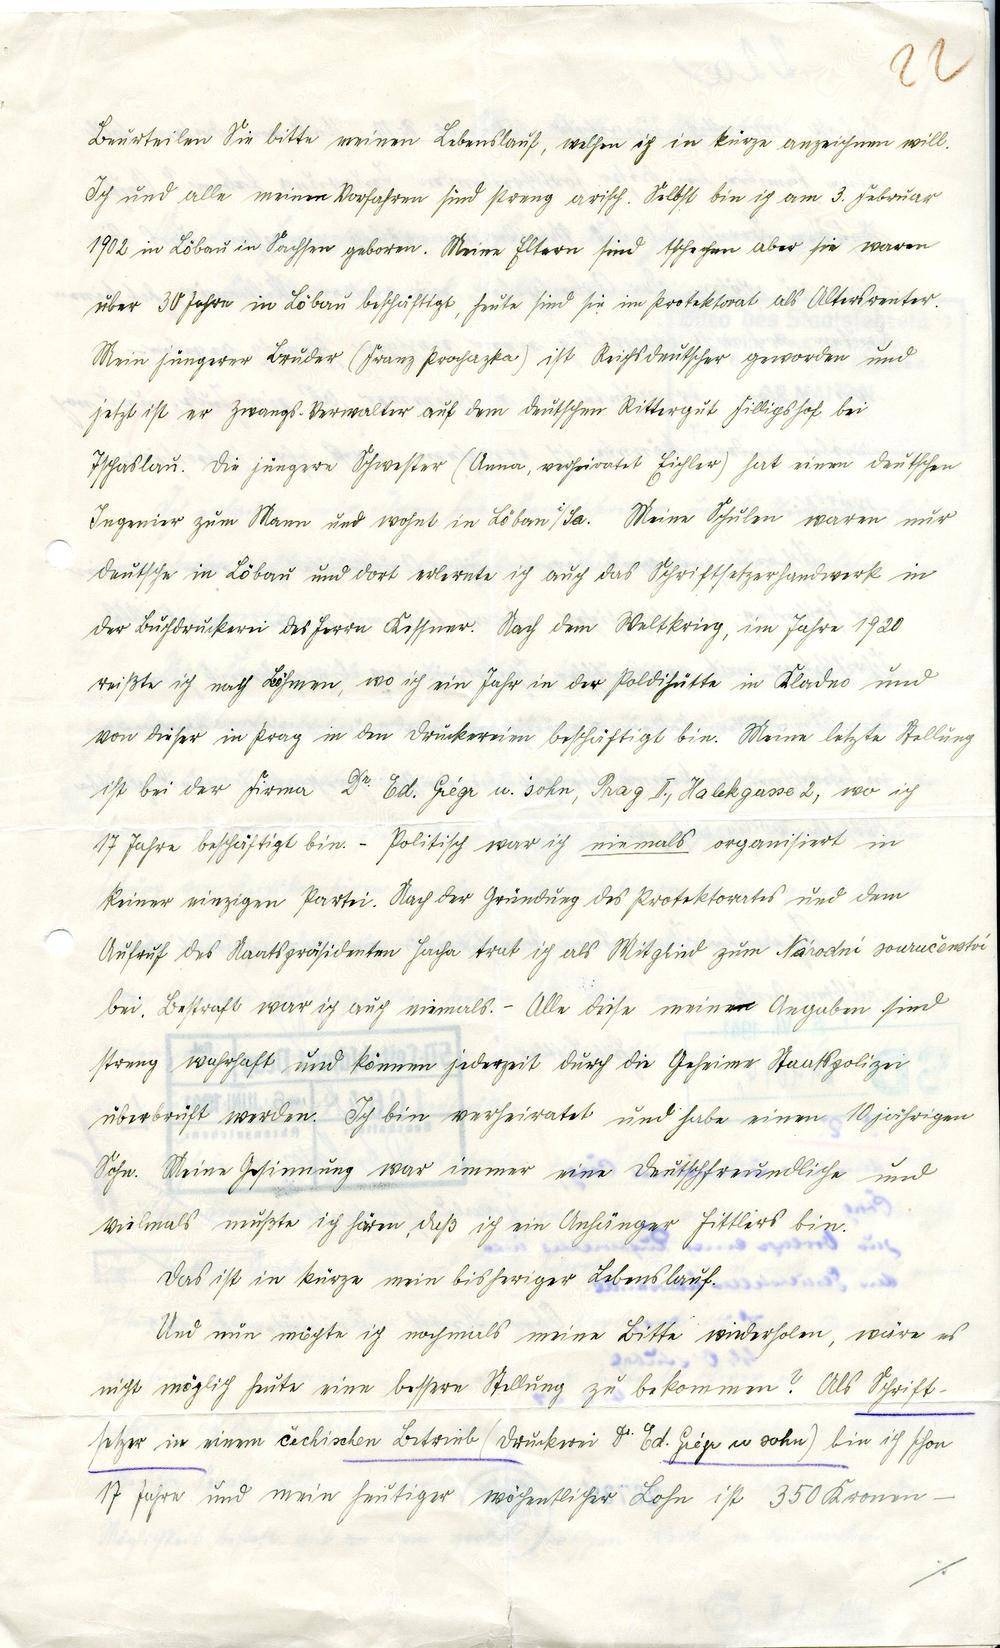 22
Beurteilen Sie bitte meinen Lebenslauf, welchen ich in kürze anzeichnen will.
Ich und alle meinen Vorfahren sind streng arisch. Selbst bin ich am 3. Februar
1902 in Löbau in Sachsen geboren. Meine Eltern sind tschechen aber sie waren
über 30 Jahre in Löbau beschäftigt, heute sind sie im Protektorat als Altersrenter.
Mein jüngerer Bruder (Franz Prochazka) ist Reichsdeutscher geworden und
jetzt ist er Zwangs-Verwalter auf dem deutschen Rittergut Fillipshof bei
Tschaslau. Die jüngere Schwester (Anna, verheiratet Eichler) hat einen deutschen
Ingenier zum Mann und wohnt in Löbau i/Sa. Meine Schulen waren nur
deutsche in Löbau und dort erlernte ich auch das Schriftsetzerhandwerk in
der Buchdruckerei des Herrn Kessner. Nach dem Weltkrieg, im Jahre 1920
reißte ich nach Böhmen, wo ich ein Jahr in der Poldihütte in Kladno und
von dieser in Prag in den Druckereien beschäftigt bin. Meine letzte Stellung
ist bei der Firma Dr. Ed. Grégr u. sohn, Prag II., Halekgasse 2, wo ich
17 Jahre beschäftigt bin. - Politisch war ich niemals organisiert in
keiner einzigen Partei. Nach der Gründung des Protektorates und dem
Aufruf des Staatspräsidenten Hacha trat ich als Mitglied zum Národní souručenství
bei. Bestraft war ich auch niemals. - Alle diese meinen Angaben sind
streng wahrhaft und können jederzeit durch die Geheime Staatspolizei
überbrüft werden. Ich bin verheiratet und habe einen 10 jährigen
Sohn. Meine Gesinnung war immer eine deutschfreundliche und
vielmals mußte ich hören, daß ich ein Anhänger Hittlers bin.
Das ist in kürze mein bisheriger Lebenslauf.
Und nun möchte ich nochmals meine Bitte wiederholen, wäre es
nicht möglich heute eine bessere Stellung zu bekommen? Als Schrift-
setzer in einem čechischen Betrieb (Druckerei Dr. Ed. Grégr u sohn) bin ich schon
17 Jahre und mein heutiger wöchentlicher Lohn ist 350 Kronen —
./.